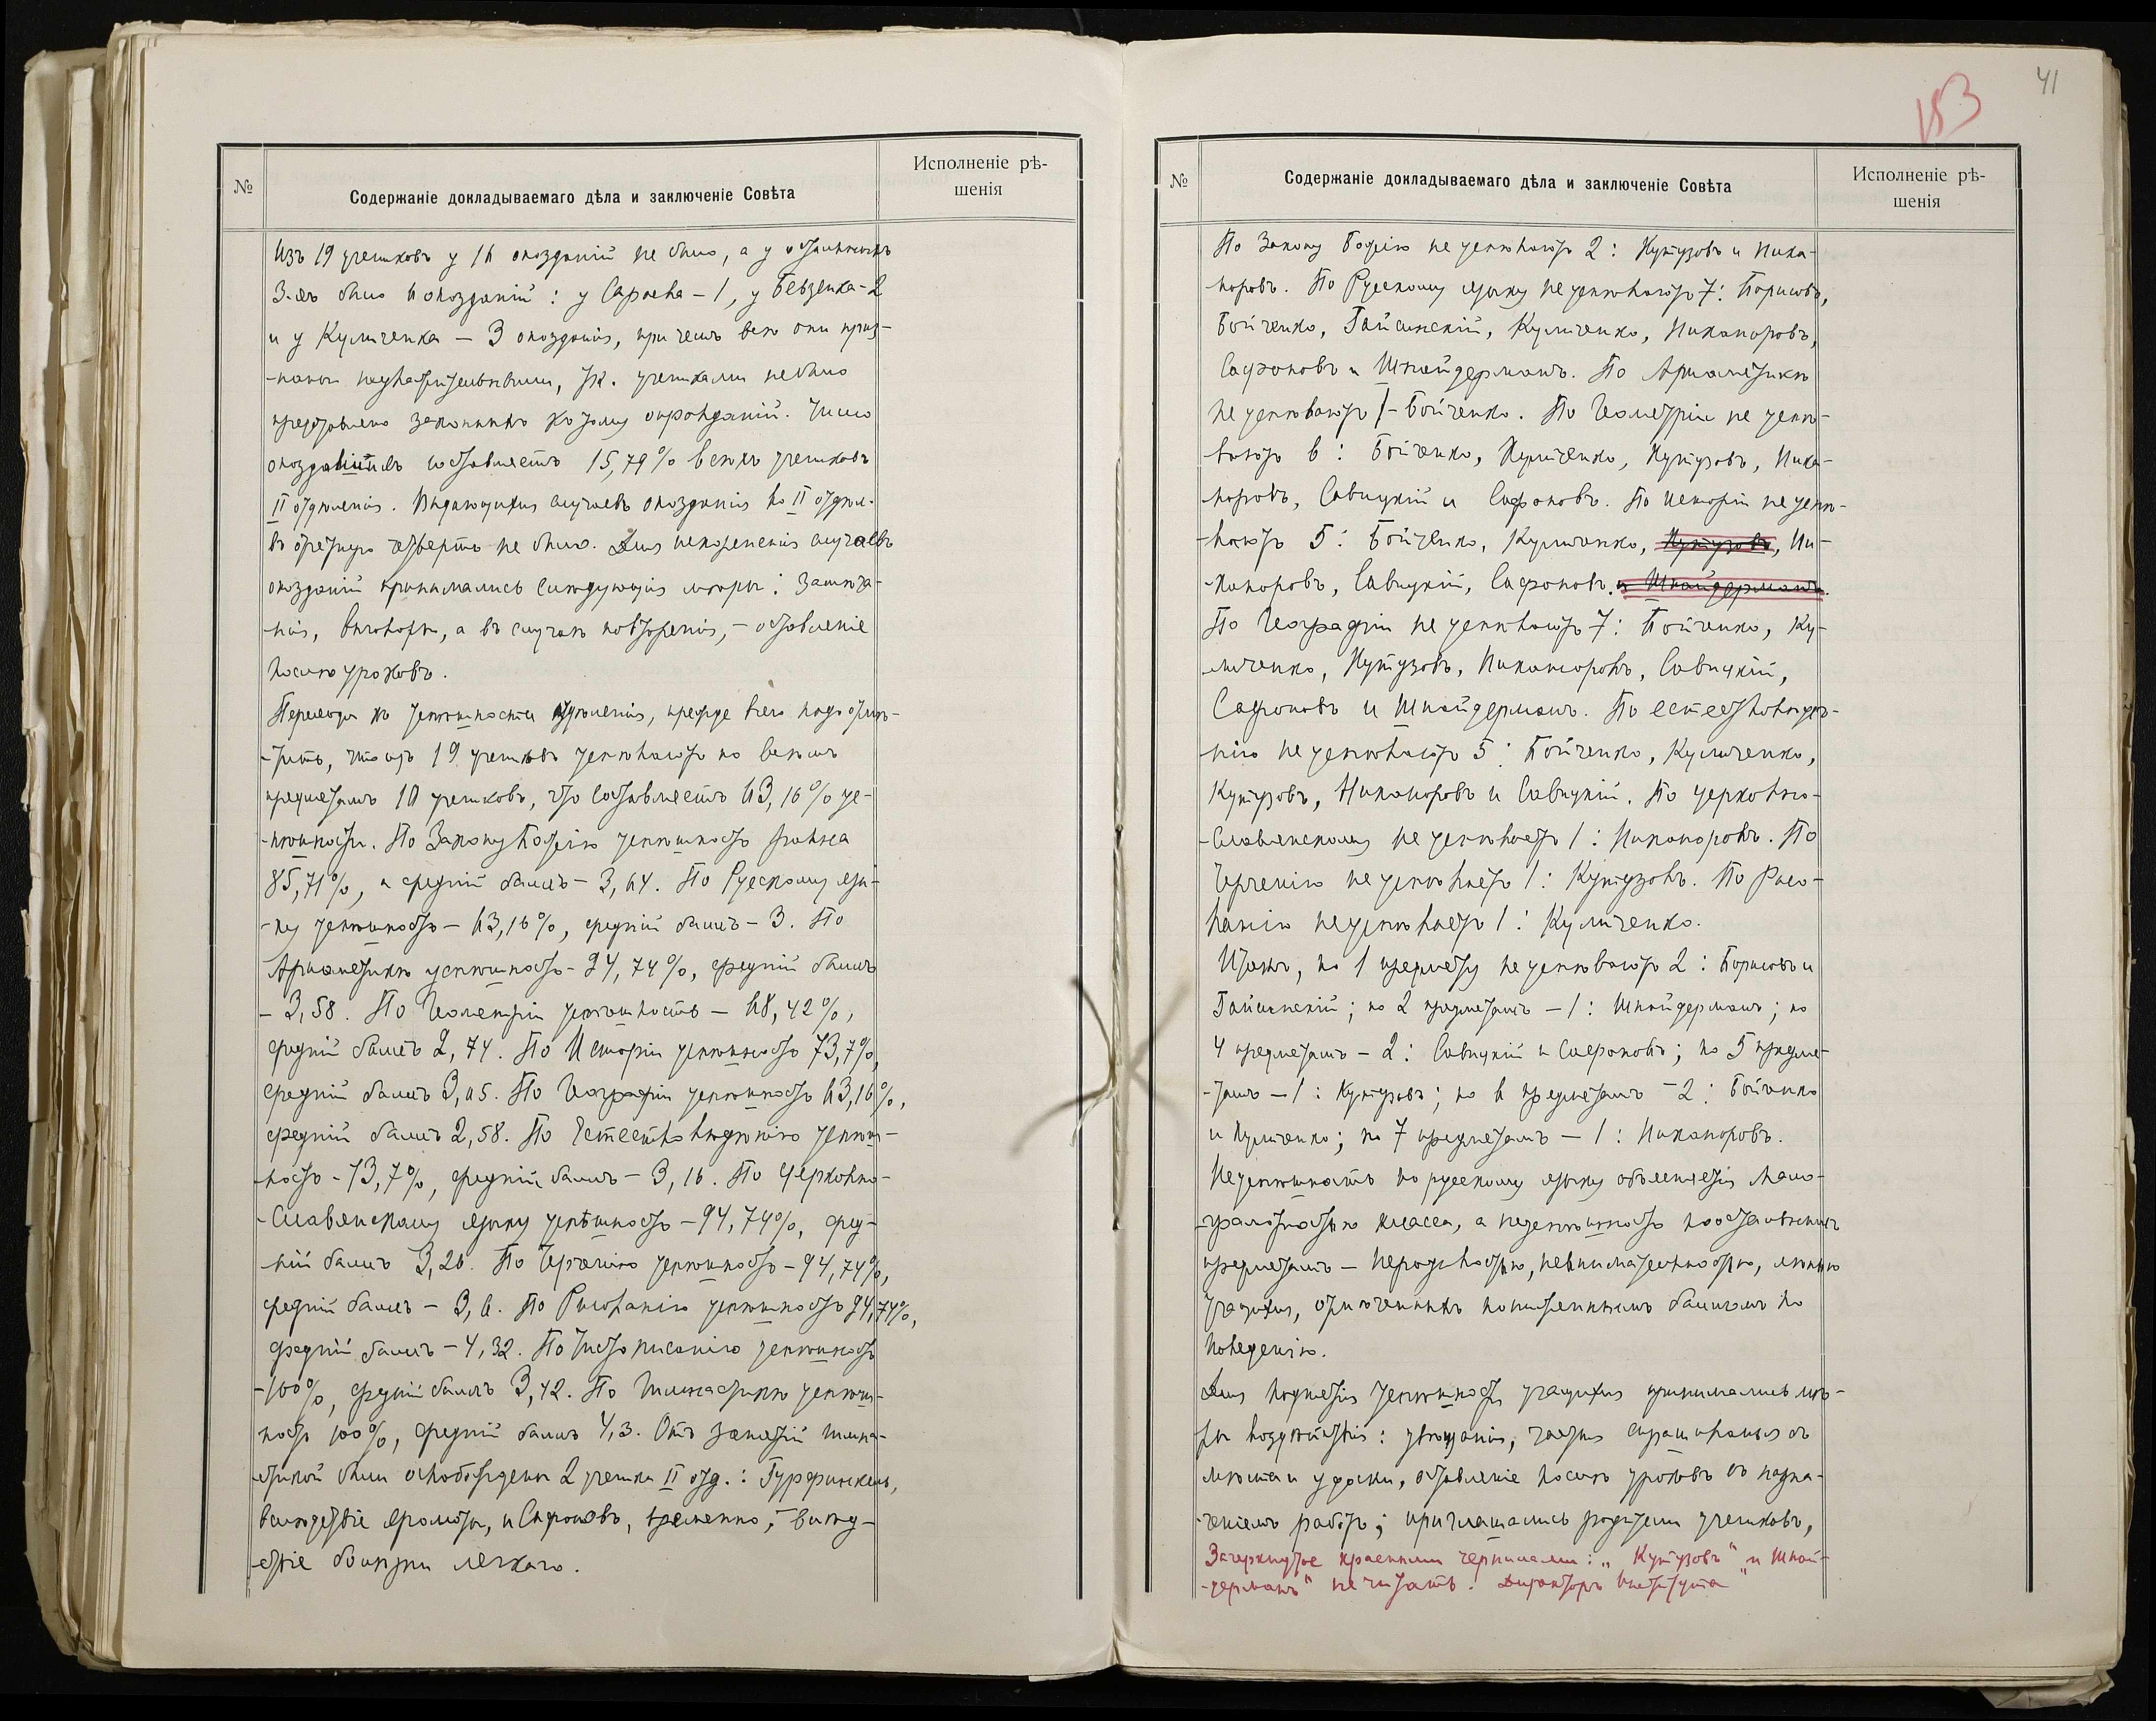 №
Содержаніе докладываемаго дѣла и заключеніе Совѣта
Исполненіе рѣ-
шенія
Изъ 19 учениковъ у 16 опозданій не было, а у остальныхъ
3-хъ было 6 опозданій: у Сараева – 1, у Бевзенка – 2
и у Куличенка – 3 опозданія, при чемъ всѣ они приз-
-наны неуважительными, т.к. учениками не было
представлено законныхъ къ тому оправданій. Число
опоздавшихъ составляетъ 15,79% всѣхъ учениковъ
II отдѣленія. Выдающихся случаевъ опозданія во II отдѣл.
въ третью четверть не было. Для искорененія случаевъ
опозданій принимались слѣдующія мѣры: замѣча-
-нія, выговоры, а въ случаѣ повторенія, – оставленіе
послѣ уроковъ.
Переходя къ успѣшности отдѣленія, прежде всего надо отмѣ-
-тить, что изъ 19 учениковъ успѣваютъ по всѣмъ
предметамъ 10 учениковъ, что составляетъ 63,16% ус-
-пѣшности. По Закону Божію успѣшность равна
85,71%, а средній баллъ – 3,64. По Русскому язы-
-ку успѣшность – 63,16%, средній баллъ – 3. По
Ариѳметикѣ успѣшность – 94,74%, средній баллъ
– 3,58. По Геометріи успѣшность – 68,42%,
средній баллъ 2,74. По Исторіи успѣшность 73,7%,
средній баллъ 3,05. По Географіи успѣшность 63,16%,
средній баллъ 2,58. По Естествовѣдѣнію успѣш-
ность – 73,7%, средній баллъ – 3,16. По Церковно-
-Славянскому языку успѣшность – 94,74%, сред-
ній баллъ 3,26. По Черченію успѣшность – 94,74%,
средній баллъ – 3,6. По Рисованію успѣшность 94,74%,
средній баллъ – 4,32. По Чистописанію успѣшность
– 100%, средній баллъ 3,42. По Гимнастикѣ успѣш-
ность 100%, средній баллъ 4,3. Отъ занятій гимна-
стикой были освобождены 2 ученика II отд.: Гурфинкель,
вслѣдствіе хромоты, и Сафоновъ, временно, – вслѣд-
ствіе болѣзни легкаго.
183
41
№
Содержаніе докладываемаго дѣла и заключеніе Совѣта
Исполненіе рѣ-
шенія
По Закону Божію не успѣваютъ 2: Кутузовъ и Ника-
норовъ. По Русскому языку не успѣваютъ 7: Борисовъ,
Бойченко, Гайсинскій, Куличенко, Никаноровъ,
Сафоновъ и Шнайдерманъ. По Ариѳметикѣ
не успѣваютъ 1 – Бойченко. По Геометріи не успѣ-
ваютъ 6: Бойченко, Куличенко, Кутузовъ, Ника-
норовъ, Савицкій и Сафоновъ. По Исторіи не успѣ-
-ваютъ 5: Бойченко, Куличенко, Кутузовъ, Ни-
-каноровъ, Савицкій, Сафоновъ. и Шнайдерманъ.
По Географіи не успѣваютъ 7: Бойченко, Ку-
личенко, Кутузовъ, Никаноровъ, Савицкій,
Сафоновъ и Шнайдерманъ. По естествовѣдѣ-
-нію не успѣваютъ 5: Бойченко, Куличенко,
Кутузовъ, Никаноровъ и Савицкій. По церковно-
-Славянскому не успѣваетъ 1: Никаноровъ. По
Черченію не успѣваетъ 1: Кутузовъ. По Рисо-
ванію не успѣваетъ 1: Куличенко.
Итакъ, по 1 предмету не успѣваютъ 2: Борисовъ и
Гайсинскій; по 2 предметамъ – 1: Шнайдерманъ; по
4 предметамъ – 2: Савицкій и Сафоновъ; по 5 предме-
-тамъ – 1: Кутузовъ; по 6 предметамъ – 2: Бойченко
и Куличенко; по 7 предметамъ – 1: Никаноровъ.
Неуспѣшность по русскому языку объясняется мало-
-грамотностью класса, а неуспѣшность по остальнымъ
предметамъ – неразвитостью, невнимательностью, лѣнью
учащихся, отмѣченныхъ пониженнымъ балломъ по
поведенію.
Для поднятія успѣшности учащихся принимались мѣ-
ры воздѣйствія: увѣщанія, частыя спрашиванія съ
мѣста и у доски, оставленіе послѣ уроковъ съ назна-
-ченіемъ работъ; приглашались родители учениковъ,
Зачеркнутое красными чернилами: „Кутузовъ“ и „Шнай-
-дерманъ“ не читать. Директоръ Института